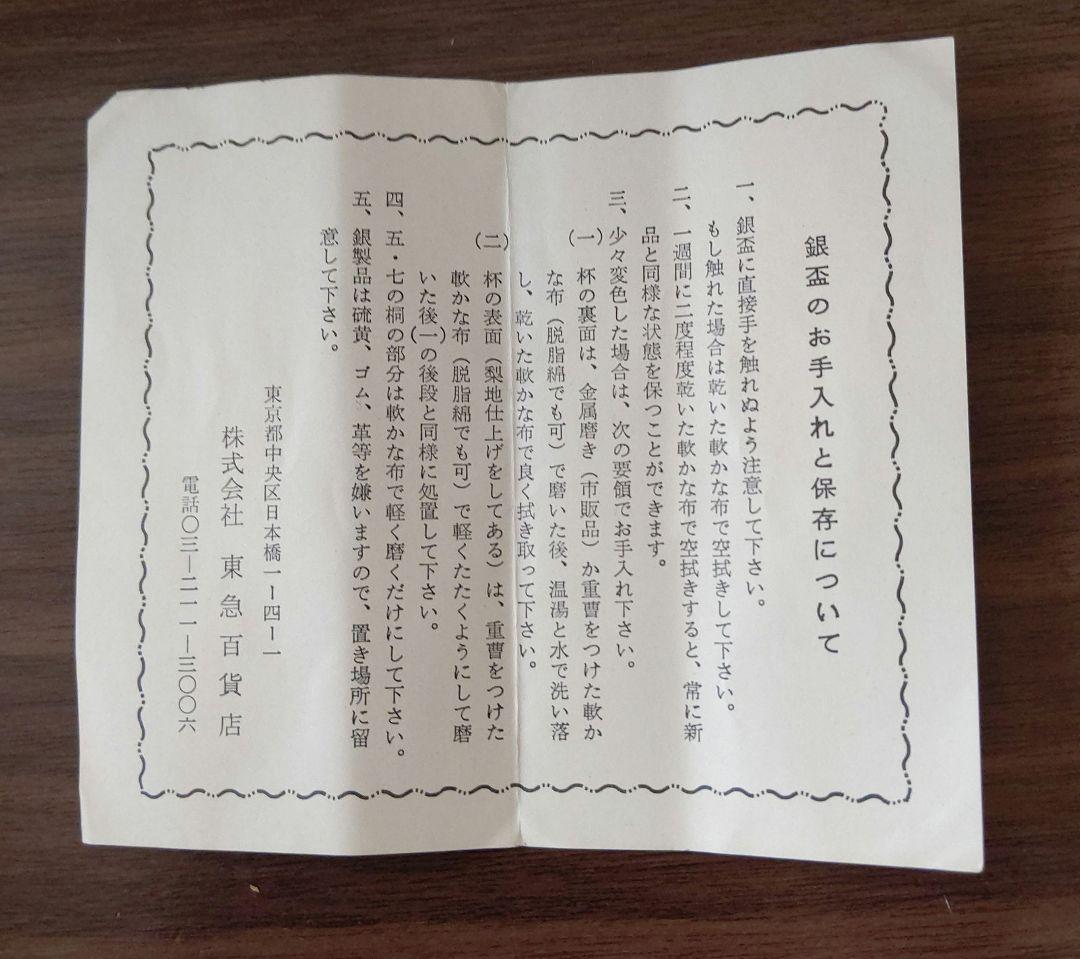 銀盃のお手入れと保存について
一、銀盃に直接手を触れぬよう注意して下さい。
もし触れた場合は乾いた軟かな布で空拭きして下さい。
二、一週間に二度程度乾いた軟かな布で空拭きすると、常に新
品と同様な状態を保つことができます。
三、少々変色した場合は、次の要領でお手入れ下さい。
(一) 杯の裏面は、金属磨き(市販品)か重曹をつけた軟か
な布(脱脂綿でも可)で磨いた後、温湯と水で洗い落
し、乾いた軟かな布で良く拭き取って下さい。
(二) 杯の表面(梨地仕上げをしてある)は、重曹をつけた
軟かな布(脱脂綿でも可)で軽くたたくようにして磨
いた後(一)の後段と同様に処置して下さい。
四、五・七の桐の部分は軟かな布で軽く磨くだけにして下さい。
五、銀製品は硫黄、ゴム、革等を嫌いますので、置き場所に留
意して下さい。
東京都中央区日本橋一ー四ー一
株式会社 東急百貨店
電話〇三―二一一―三〇〇六